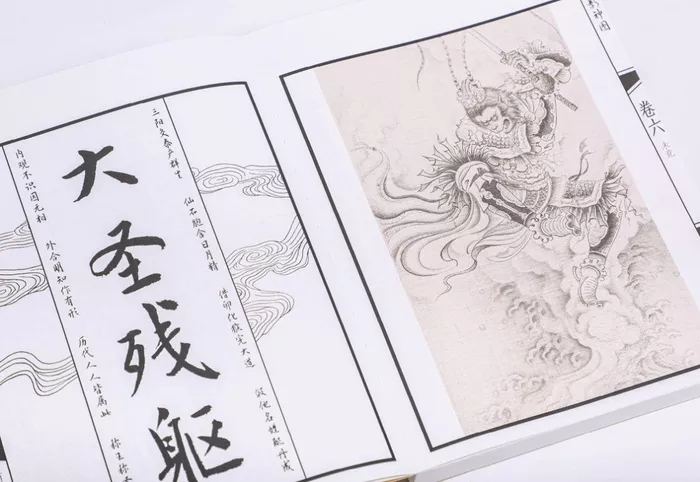 大圣残躯
三阳交泰产群生
仙石胞含日月精
借卵化猴完大道
假他名姓配丹成
内观不识因无相
外合明知作有形
历代人人皆属此
称王称
影神图
卷六